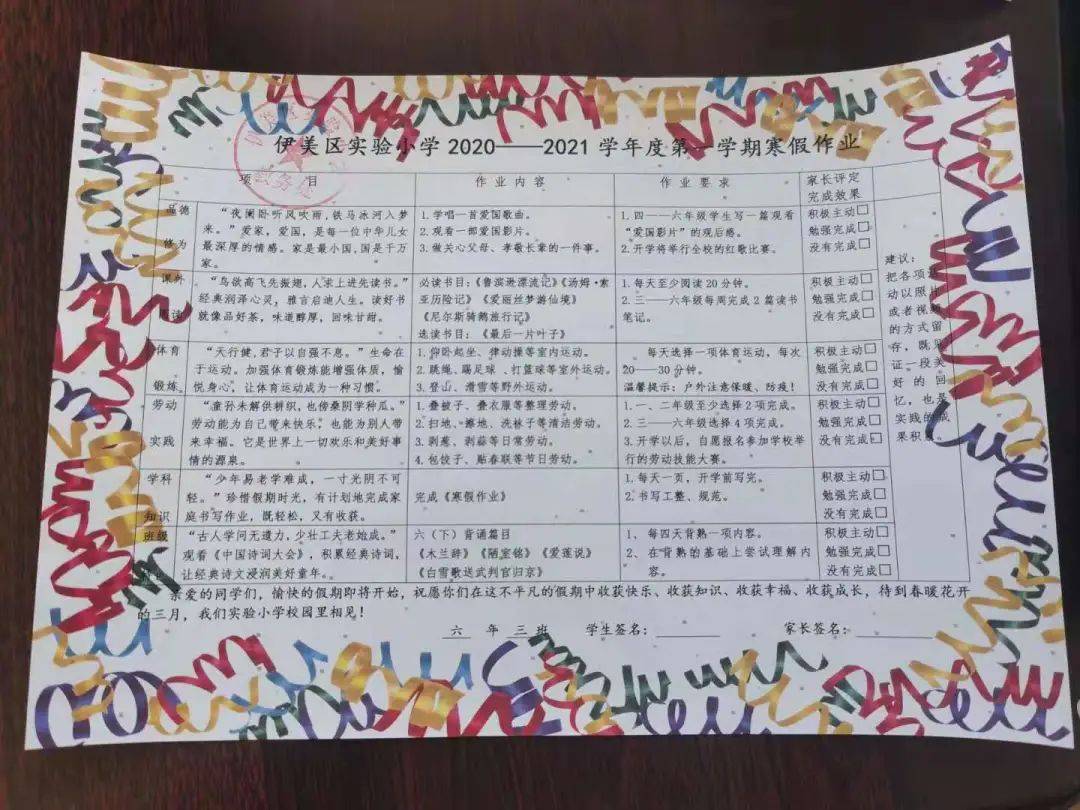 伊美区实验小学2020——2021学年度第一学期寒假作业
项 目
作业内容
作业要求
家长评定
完成效果
品德
修为
“夜阑卧听风吹雨,铁马冰河入梦
来。”爱家,爱国,是每一位中华儿女
最深厚的情感。家是最小国,国是千万
家。
1.学唱一首爱国歌曲。
2.观看一部爱国影片。
3.做关心父母、孝敬长辈的一件事。
1.四——六年级学生写一篇观看
“爱国影片”的观后感。
2.开学将举行全校的红歌比赛。
积极主动□
勉强完成□
没有完成□
课外
阅读
“鸟欲高飞先振翅,人求上进先读书。”
经典润泽心灵,雅言启迪人生。读好书
就像品好茶,味道醇厚,回味甘甜。
必读书目:《鲁滨逊漂流记》《汤姆·索
亚历险记》《爱丽丝梦游仙境》
《尼尔斯骑鹅旅行记》
选读书目:《最后一片叶子》
1.每天至少阅读20分钟。
2.三——六年级每周完成2篇读书
笔记。
积极主动□
勉强完成□
没有完成□
体育
锻炼
“天行健,君子以自强不息。”生命在
于运动。加强体育锻炼能增强体质,愉
悦身心。让体育运动成为一种习惯。
1.仰卧起坐、律动操等室内运动。
2.跳绳、踢足球、打篮球等室外运动。
3.登山、滑雪等野外运动。
每天选择一项体育运动,每次
20——30分钟。
温馨提示:户外注意保暖、防疫!
积极主动□
勉强完成□
没有完成□
劳动
实践
“童孙未解供耕织,也傍桑阴学种瓜。”
劳动能为自己带来快乐,也能为别人带
来幸福。它是世界上一切欢乐和美好事
情的源泉。
1.叠被子、叠衣服等整理劳动。
2.扫地、擦地、洗袜子等清洁劳动。
3.剥葱、剥蒜等日常劳动。
4.包饺子、贴春联等节日劳动。
1.一、二年级至少选择2项完成。
2.三——六年级选择4项完成。
3.开学以后,自愿报名参加学校举
行的劳动技能大赛。
积极主动□
勉强完成□
没有完成□
学科
知识
“少年易老学难成,一寸光阴不可
轻。”珍惜假期时光,有计划地完成家
庭书写作业,既轻松,又有收获。
完成《寒假作业》
1.每天一页,开学前写完。
2.书写工整、规范。
积极主动□
勉强完成□
没有完成□
班级
“古人学问无遗力,少壮工夫老始成。”
观看《中国诗词大会》,积累经典诗词,
让经典诗文浸润美好童年。
六(下)背诵篇目
《木兰辞》《陋室铭》《爱莲说》
《白雪歌送武判官归京》
1、每四天背熟一项内容。
2、在背熟的基础上尝试理解内
容。
积极主动□
勉强完成□
没有完成□
建议:
把各项活
动以照片
或者视频
的方式留
存,既见
证一段美
好的回
忆,也是
实践的成
果积累。
亲爱的同学们,愉快的假期即将开始,祝愿你们在这不平凡的假期中收获快乐、收获知识、收获幸福、收获成长,待到春暖花开
的三月,我们实验小学校园里相见!
六 年 三 班 学生签名: 家长签名: